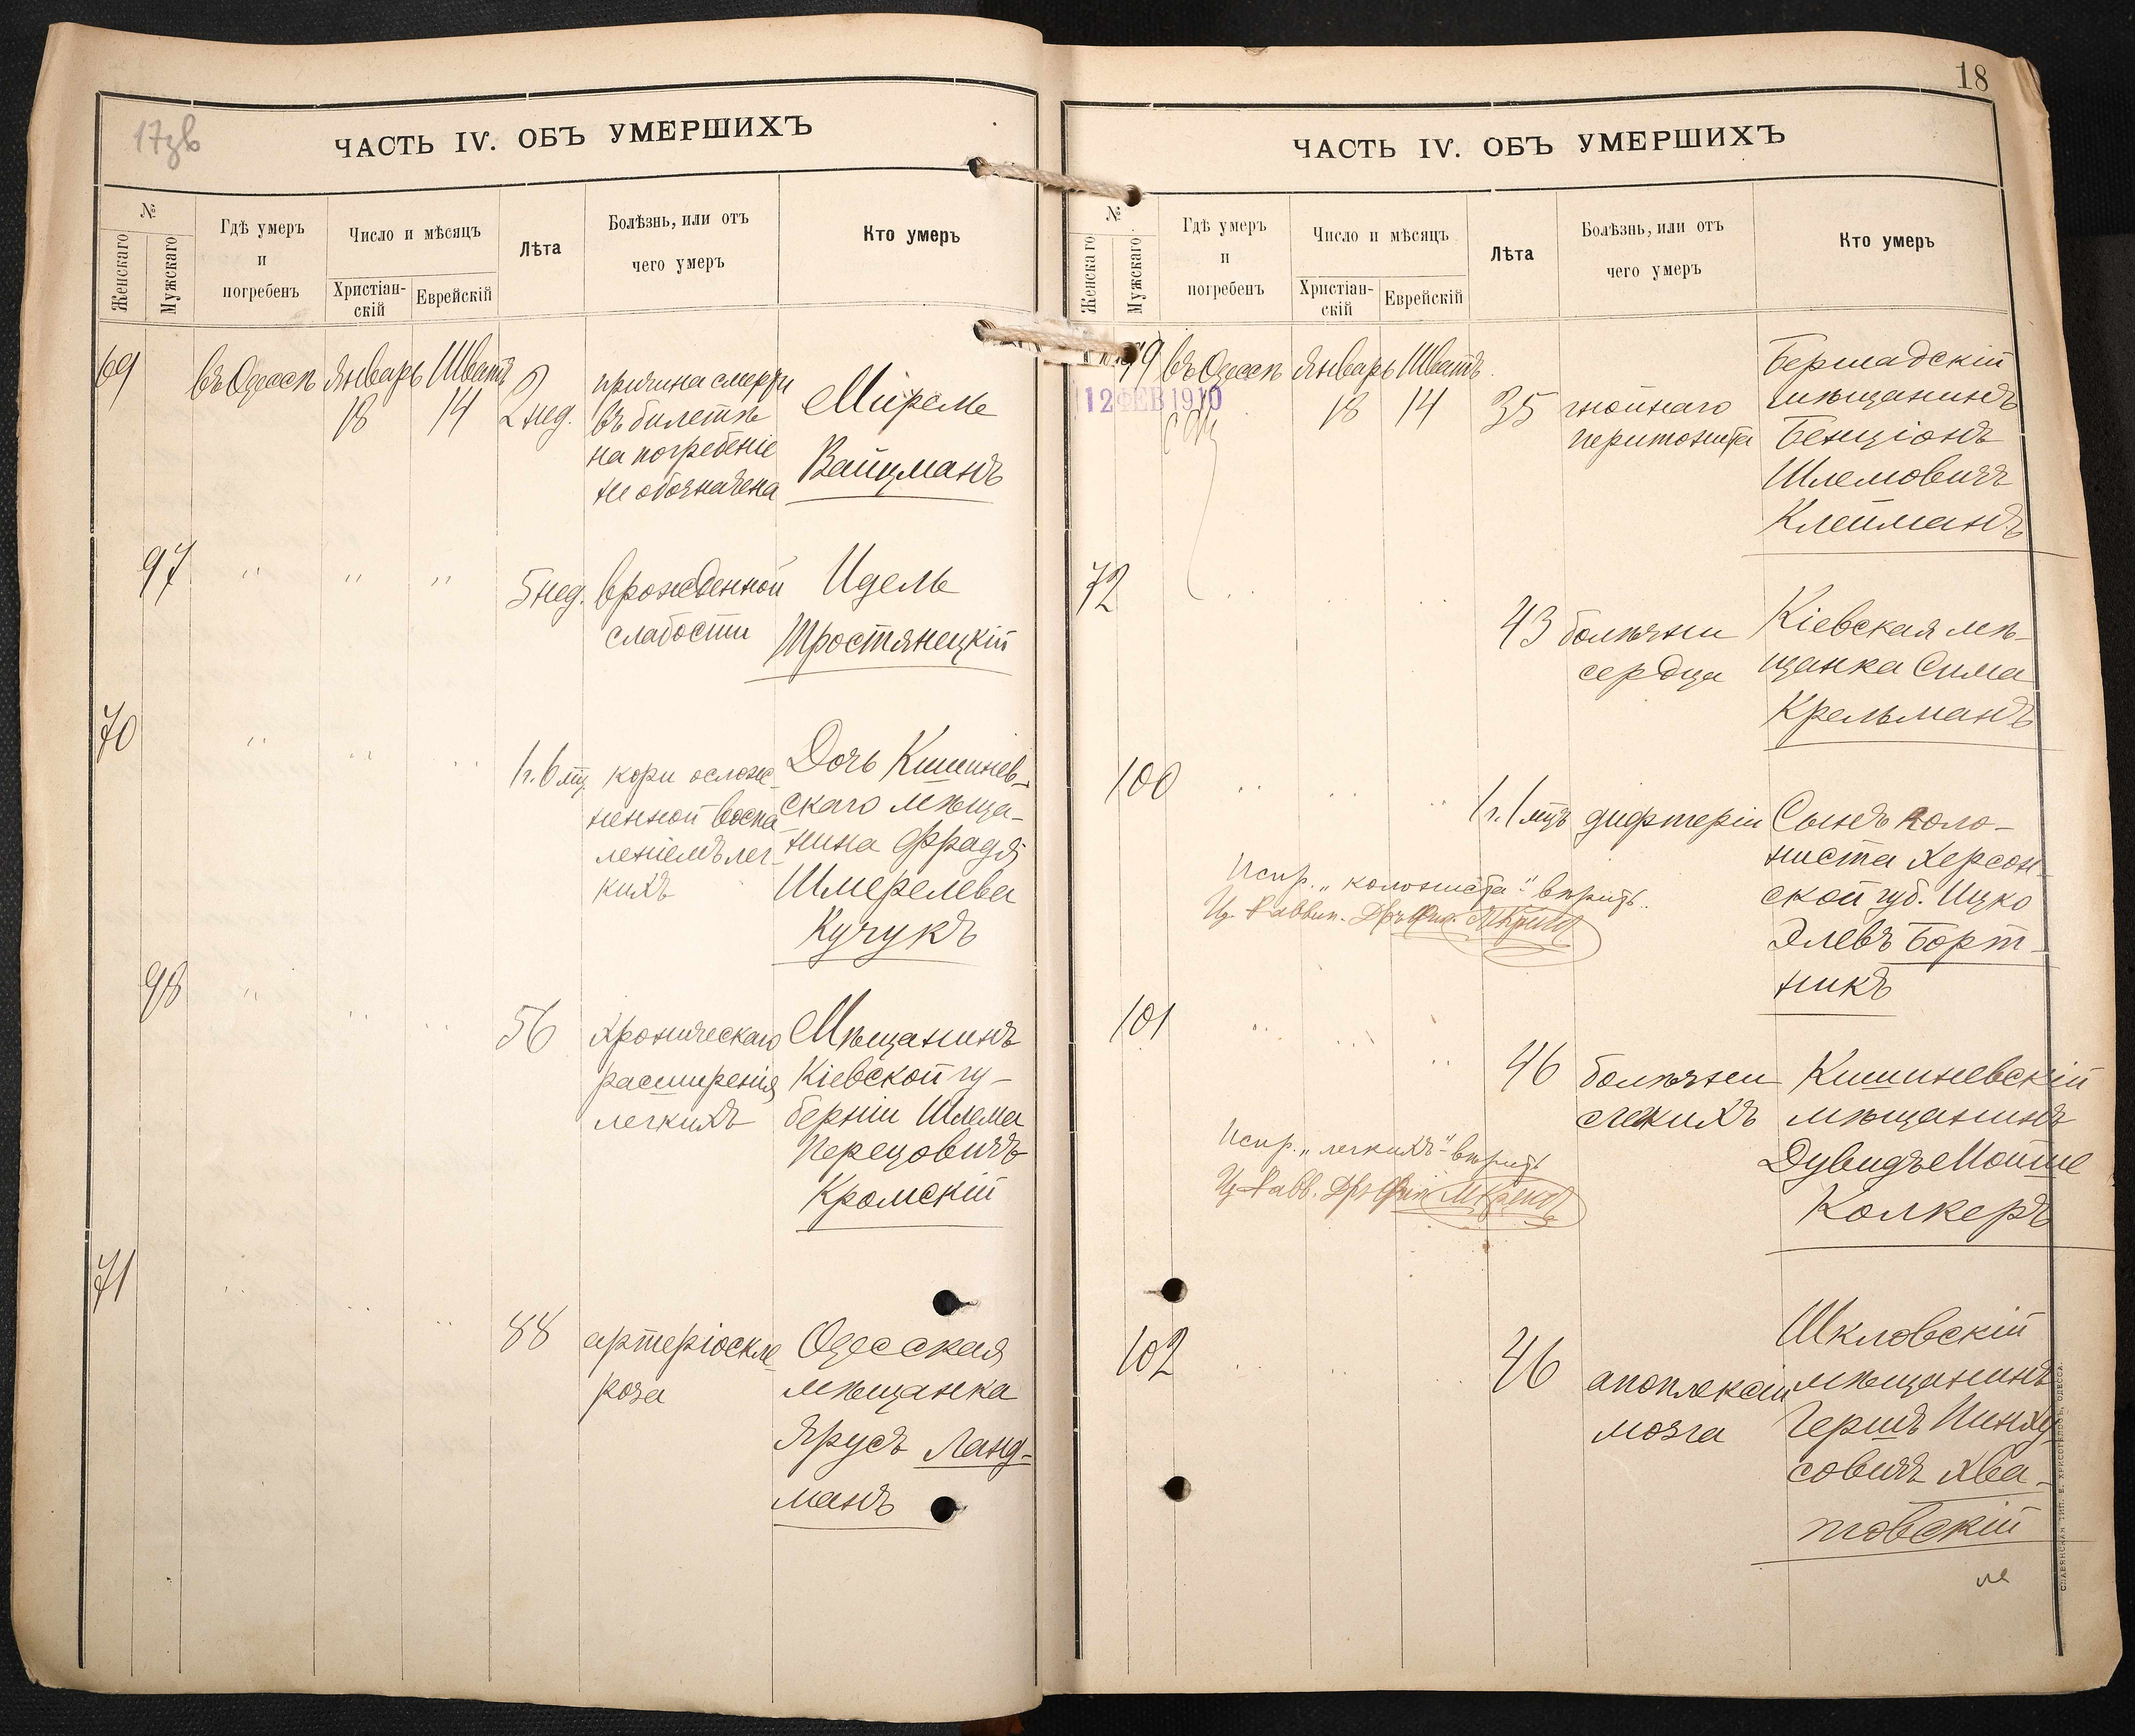 17зв
ЧАСТЬ IV. ОБЪ УМЕРШИХЪ
№
Женскаго
Мужскаго
Гдѣ умеръ
и
погребенъ
Число и мѣсяцъ
Христіан-
скій
Еврейскій
Лѣта
Болѣзнь, или отъ
чего умеръ
Кто умеръ
69 въ Одессѣ Январь Шватъ
18 14 2 нед.
причина смерти
въ билетѣ
на погребеніе
не обозначена
Миреле
Вайцманъ
97 " " " 5 нед. врожденной
слабости
Идель
Тростянецкій
70 " " " 1 г. 6 мц. кори ослож-
ненной воспа
леніемъ лег-
кихъ
Дочь Кишинев-
скаго мѣща-
нина Фрадя
Шмерелева
Кучукъ
98 " " " 56 хроническаго
расширенія
легкихъ
Мѣщанинъ
Кіевской гу-
берніи Шлема
Перецовичъ
Кромскій
71 " " " 88 артеріоскле
роза
Одесская
мѣщанка
Ярусъ Ланд-
манъ
18
ЧАСТЬ IV. ОБЪ УМЕРШИХЪ
№
Женскаго
Мужскаго
Гдѣ умеръ
и
погребенъ
Число и мѣсяцъ
Христіан-
скій
Еврейскій
Лѣта
Болѣзнь, или отъ
чего умеръ
Кто умеръ
99 въ Одессѣ Январь Шватъ
12 ФЕВ 1910
18 14 35 гнойнаго
перитонита
Бершадскій
мѣщанинъ
Бенціонъ
Шлемовичъ
Клейманъ
72 " " " 43 болѣзни
сердца
Кіевская мѣ-
щанка Сима
Крельманъ
100 " " " 1 г. 1 мцъ дифтеріи
Сынъ коло-
ниста Херсон-
ской губ. Ицко
Элевъ Борт-
никъ
Испр. „колониста" вѣрить.
101 " " " 46 болѣзни
легкихъ
Кишиневскій
мѣщанинъ
Дувидъ Мойше
Колкеръ
Испр. „легкихъ" вѣрить
102 " " " 46 апоплексіи
мозга
Шкловскій
мѣщанинъ
Гершъ Пинху
совичъ Хва-
товскій
СЛАВЯНСКАЯ ТИП. Е. ХРИСОГЕЛОСЪ, ОДЕССА.